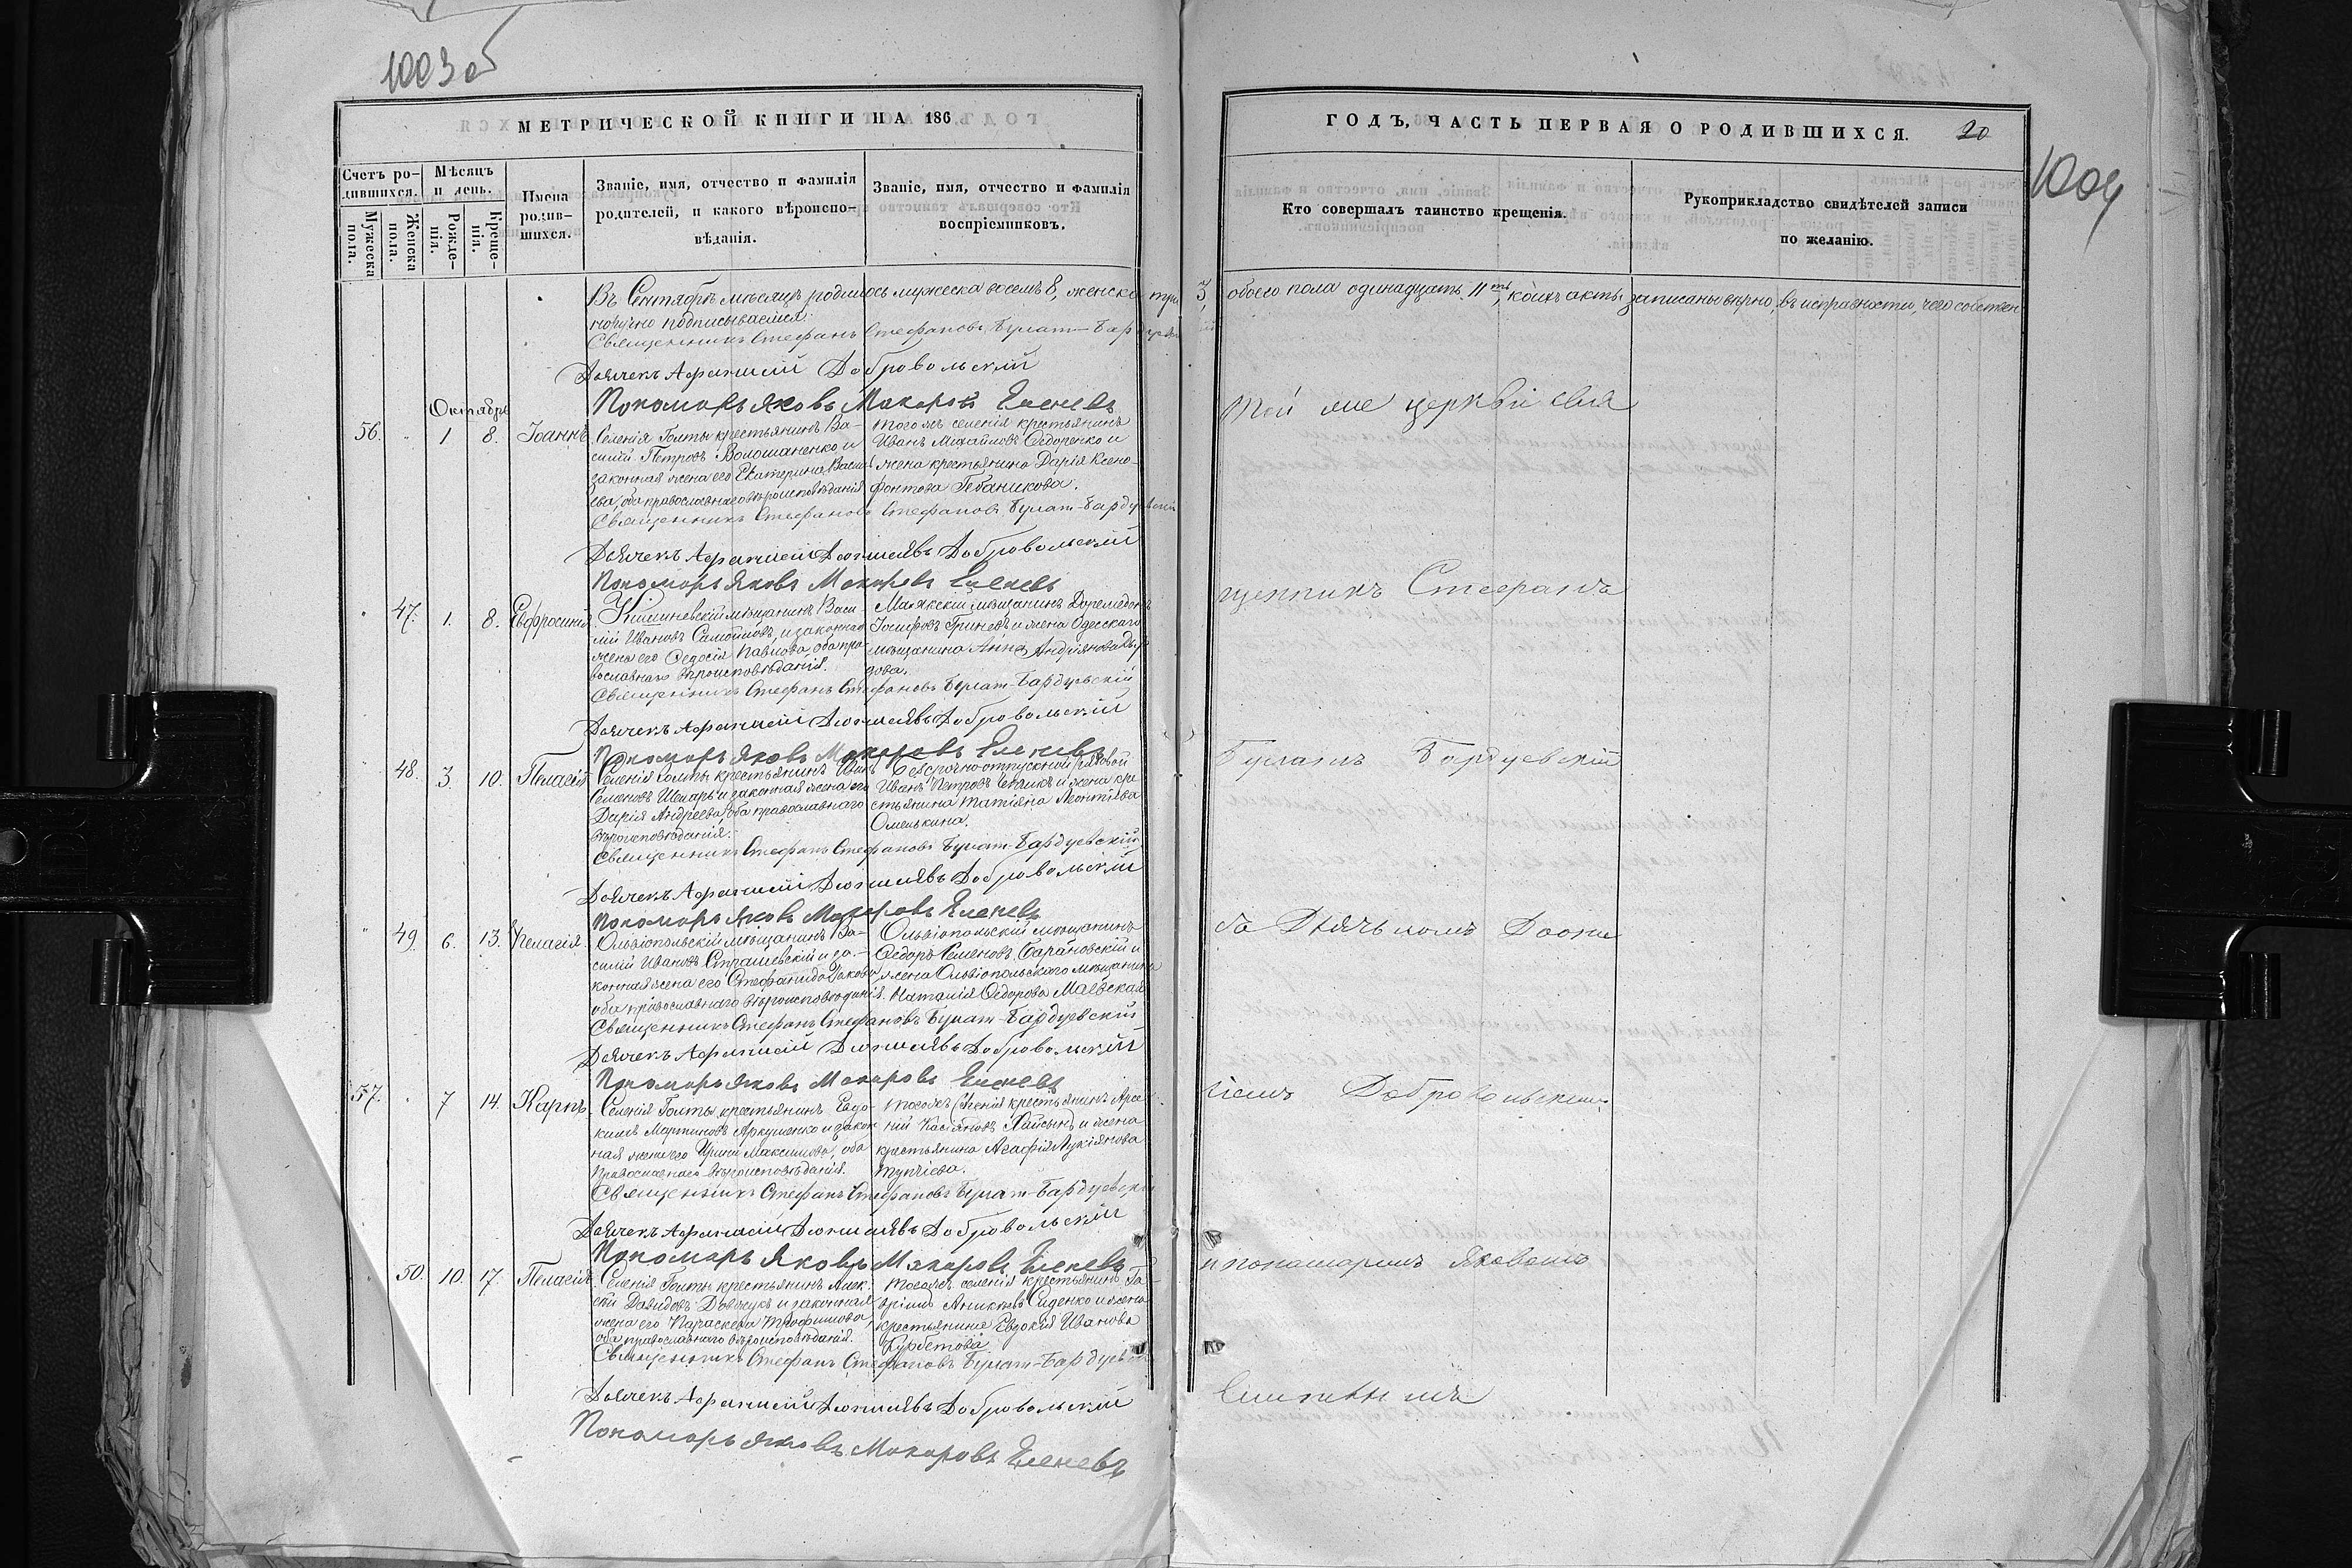 1003 об
МЕТРИЧЕСКОЙ КНИГИ НА 186
ГОДЪ, ЧАСТЬ ПЕРВАЯ О РОДИВШИХСЯ.
20
1004
Счетъ ро-
дившихся.
Мѣсяцъ
и день.
Мужеска
пола.
Женска
пола.
Рожде-
нія.
Креще-
нія.
Имена
родив-
шихся.
Званіе, имя, отчество и фамилія
родителей, и какого вѣроиспо-
вѣданія.
Званіе, имя, отчество и фамилія
воспріемниковъ.
Кто совершалъ таинство крещенія.
Рукоприкладство свидѣтелей записи
по желанію.
Въ Сентябрѣ мѣсяцѣ родилось мужеска восемь 8, женска три 3, обоего пола одинадцать 11ть, коихъ акты записаны вѣрно, въ исправности, чего собствен
норучно подписываемся:
Священникъ Стефанъ Стефановъ Булат-Бардуевскій
Дьячекъ Афанасій Добровольскій
Пономарь Яковъ Макаровъ Еленевъ
Октябрь
56. " 1 8. Іоаннъ
Селенія Голты крестьянинъ Ва-
силій Петровъ Волошаненко и
законная жена его Екатерина Васил
ева, оба православнаго вѣроисповѣданія
Тогожъ селенія крестьянинъ
Иванъ Михайловъ Ѳедоренко и
жена крестьянина Дарія Ксено-
фонтова
Священникъ Стефановъ Стефановъ Булат-Бардуевскій
Дьячекъ Афанасій Добровольскій
Пономарь Яковъ Макаровъ Еленевъ
" 47. 1. 8. Евфросинія
Кишиневскій мѣщанинъ Васи
лій Ивановъ Самойловъ, и законная
жена его Ѳедосія Павлова, оба пра
вославнаго вѣроисповѣданія.
Маякскій мѣщанинъ Доримедонтъ
Іосифовъ Гриневъ и жена Одесскаго
мѣщанина Анна Андріянова
Священникъ Стефанъ Стефановъ Булат-Бардуевскій
Дьячекъ Афанасій Добровольскій
Пономарь Яковъ Макаровъ Еленевъ
" 48. 3. 10. Пелагія
Селенія Голты крестьянинъ Иванъ
Семеновъ и законная жена его
Дарія Андреева, оба православнаго
вѣроисповѣданія.
Безсрочноотпускной рядовой
Иванъ Петровъ и жена кре
стьянина Татіяна Леонтіева
Омелькина.
Священникъ Стефанъ Стефановъ Булат-Бардуевскій
Дьячекъ Афанасій Добровольскій
Пономарь Яковъ Макаровъ Еленевъ
" 49. 6. 13. Пелагія
Ольвіопольскій мѣщанинъ Ва-
силій Ивановъ Страшевскій и за-
конная жена его Стефанида Яковлева
оба православнаго вѣроисповѣданія.
Ольвіопольскій мѣщанинъ
Ѳедоръ Семеновъ Барановскій и
жена Ольвіопольскаго мѣщанина
Наталія Ѳедорова Маевская
Священникъ Стефанъ Стефановъ Булат-Бардуевскій
Дьячекъ Афанасій Добровольскій
Пономарь Яковъ Макаровъ Еленевъ
57. " 7 14. Карпъ
Селенія Голты, крестьянинъ Евдо-
кимъ Мартиновъ и закон
ная жена его Ирина Максимова, оба
Православнаго вѣроисповѣданія.
Тогожъ селенія крестьянинъ Арсе
ній Касіяновъ и жена
крестьянина Агафія Лукіянова
Священникъ Стефанъ Стефановъ Булат-Бардуевскій
Дьячекъ Афанасій Добровольскій
Пономарь Яковъ Макаровъ Еленевъ
50. 10. 17. Пелагія
Селенія Голты крестьянинъ Алек-
сѣй Давидовъ и законная
жена его Параскева Трофимова,
оба православнаго вѣроисповѣданія.
Тогожъ селенія крестьянинъ Га-
вріилъ Сиденко и жена
крестьянина Евдокія Иванова
Курбетова
Священникъ Стефанъ Стефановъ Булат-Бардуевскій
Дьячекъ Афанасій Добровольскій
Пономарь Яковъ Макаровъ Еленевъ
Той же церкви свя
щенникъ Стефанъ
Булатъ Бардуевскій
съ Дьячкомъ
Добровольскимъ
и пономаремъ Яковомъ